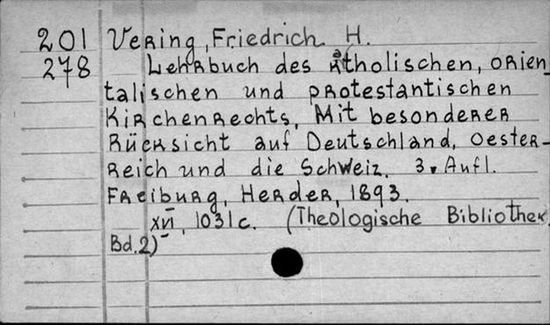 201 Vering, Friedrich H.
278 Lehrbuch des katholischen, orien-
talischen und protestantischen
Kirchenrechts, Mit besonderer
Rücksicht auf Deutschland, Oester-
reich und die Schweiz. 3. Aufl.
Freiburg, Herder, 1893.
XVI, 1031 c. (Theologische Bibliothek.
Bd. 2)